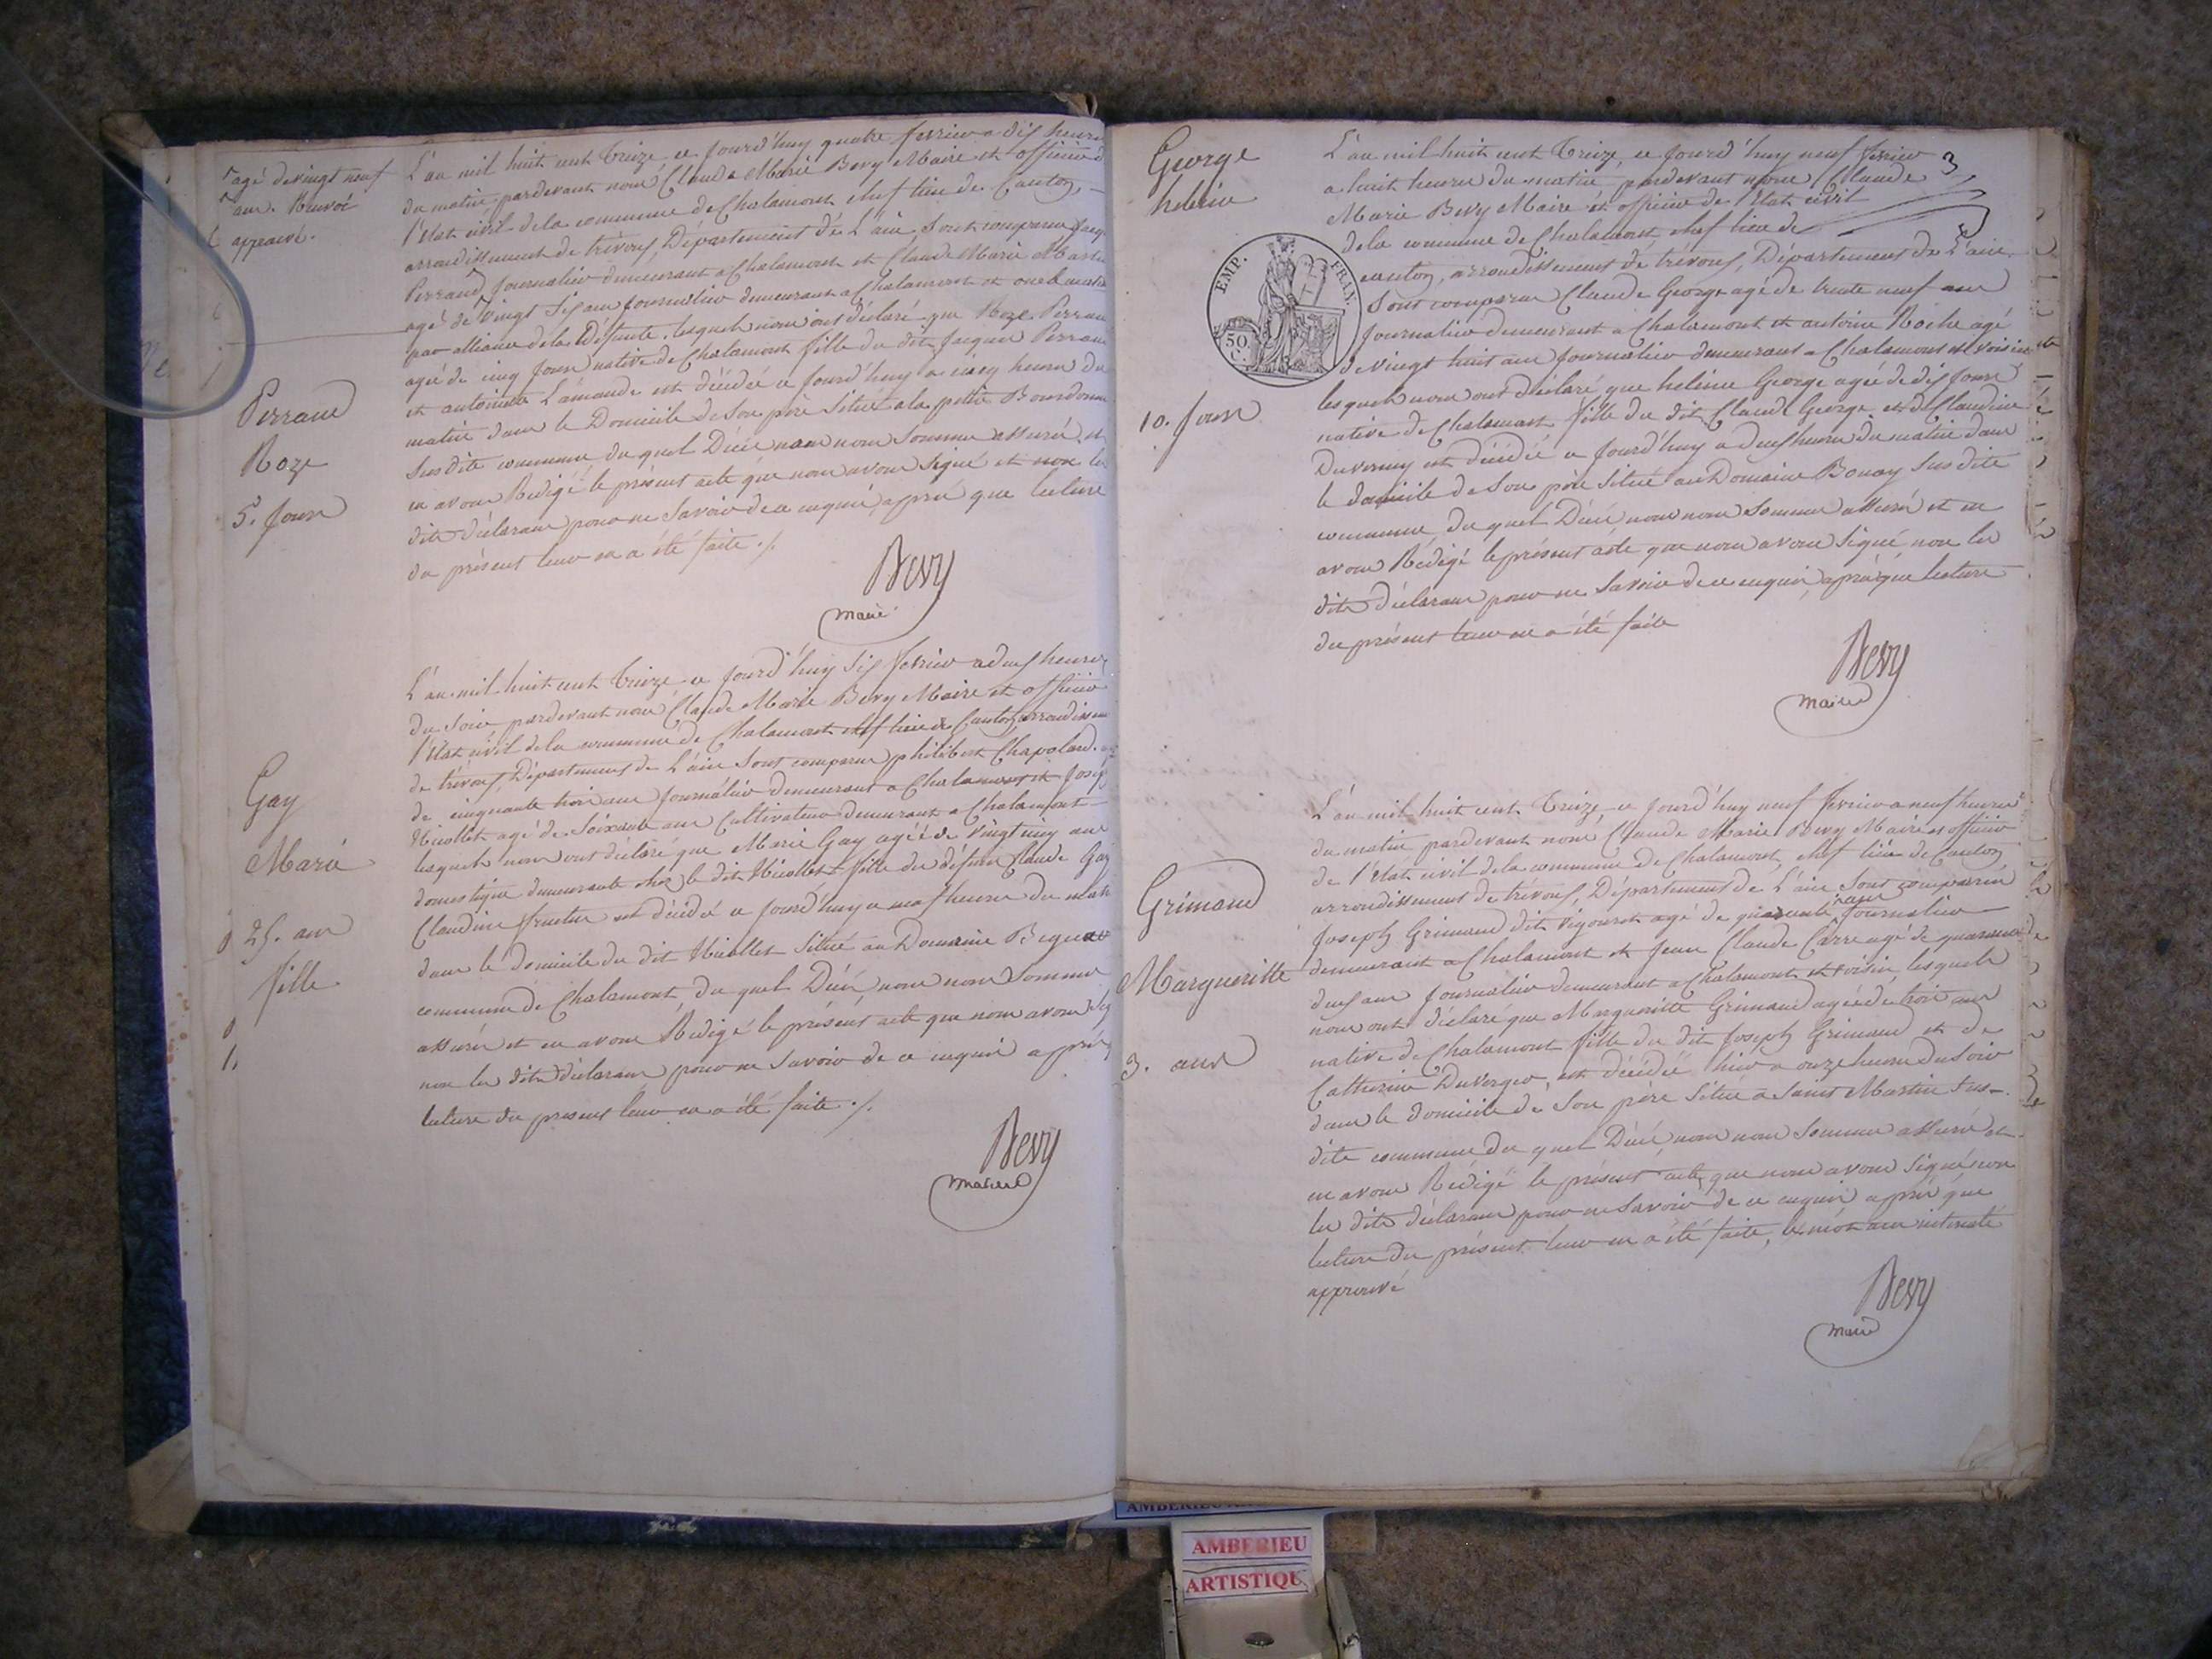 agé de vingt neuf
ans. Renvoi
approuvé.
L'an mil huit cent treize ce jourd'huy quatre fevrier a dix heures
du matin pardevant nous Claude Marie Bevy Maire et officier d
l'Etat civil de la commune de Chalamont chef lieu de Canton,
arrondissement de trévoux, Département de L'ain sont comparus Jacq
Perraud journalier demeurant a Chalamont et Claude Marie
agé de vingt six ans journalier demeurant a Chalamont et oncle
par alliance de la Défunte. lesquels nous ont déclaré que Roze Perrau
agée de cinq jours native de Chalamont fille du dit Jacques Perrau
et antoinette Lamande est décédée ce jourd'huy a cinq heures du
matin dans le Domicile de son père situé a la petite
Perraud
Roze
5. jours
susdite commune du quel Décès nous nous sommes assuré et
en avons Redigé le présent acte que nous avons signé et non les
dits déclarans pour ne savoir de ce enquis, après que lecture
du présent leur en a été faite ./.
Bevy
maire
L'an mil huit cent treize ce jourd'huy six fevrier a deux heures
du soir, pardevant nous Claude Marie Bevy Maire et officier
l'Etat civil de la commune de Chalamont chef lieu de Canton, arrondissem
de trévoux, Département de L'ain sont comparus philibert Chapolard
de cinquante trois ans journalier demeurant a Chalamont et Josep
Nicollet agé de soixante ans Cultivateur demeurant a Chalamont
lesquels nous ont déclaré que Marie Gay agée de vingt cinq ans
domestique demeurante chez le dit Nicollet fille du défunt Claude Gay
Claudine est décédée ce jourd'huy a neuf heures du matin
Gay
Marie
25. ans
fille
dans le domicile du dit Nicollet situé au Domaine
commune de Chalamont, du quel Décès nous nous sommes
assurés et en avons Redigé le présent acte que nous avons sig
non les dits déclarans pour ne savoir de ce enquis après
lecture du present leur en a été faite ./.
Bevy
maire
3
George
helène
L'an mil huit cent treize, ce jourd'huy neuf fevrier
a huit heures du matin, pardevant nous Claude
Marie Bevy Maire et officier de l'Etat civil
de la commune de Chalamont, chef lieu de
canton, arrondissement de trévoux, Département de L'ain.
EMP. FRAN.
50.
C.
sont comparus Claude George agé de trente neuf ans
journalier demeurant a Chalamont et antoine Roche agé
de vingt huit ans journalier demeurant a Chalamont et voisin
lesquels nous ont déclaré que helène George agée de dix jours
10. jours
native de Chalamont fille du dit Claude George et de Claudine
Duvernay est décédée ce jourd'huy a deux heures du matin dans
le domicile de son père situé au Domaine Bonay susdite
commune du quel Décès nous nous sommes assuré et en
avons Rédigé le présent acte que nous avons signé non les
dits déclarans pour ne savoir de ce enquis, après que lecture
du présent leur en a été faite
Bevy
maire
L'an mil huit cent treize, ce jourd'huy neuf fevrier a neuf heures
du matin pardevant nous Claude Marie Bevy Maire et officier
de l'Etat civil de la commune de Chalamont, chef lieu de Canton
arrondissement de trévoux, Département de L'ain sont comparus
Grimaud
Joseph Grimaud dit vigouret agé de quarante ans journalier
Marguerite
demeurant a Chalamont et Jean Claude Carre agé de quarante
deux ans journalier demeurant a Chalamont et voisin, lesquels
nous ont déclaré que Marguerite Grimaud agée de trois ans
3. ans
native de Chalamont fille du dit Joseph Grimaud et de
Catherine Duverger, est décédée hier a onze heures du soir
dans le domicile de son père situé a Saint Martin sus-
dite commune du quel Décès nous nous sommes assuré et
en avons Rédigé le présent acte que nous avons signé non
les dits déclarans pour ne savoir de ce enquis après que
lecture du présent leur en a été faite, le mot ans
approuvé
Bevy
maire
AMBERIEU
ARTISTIQU